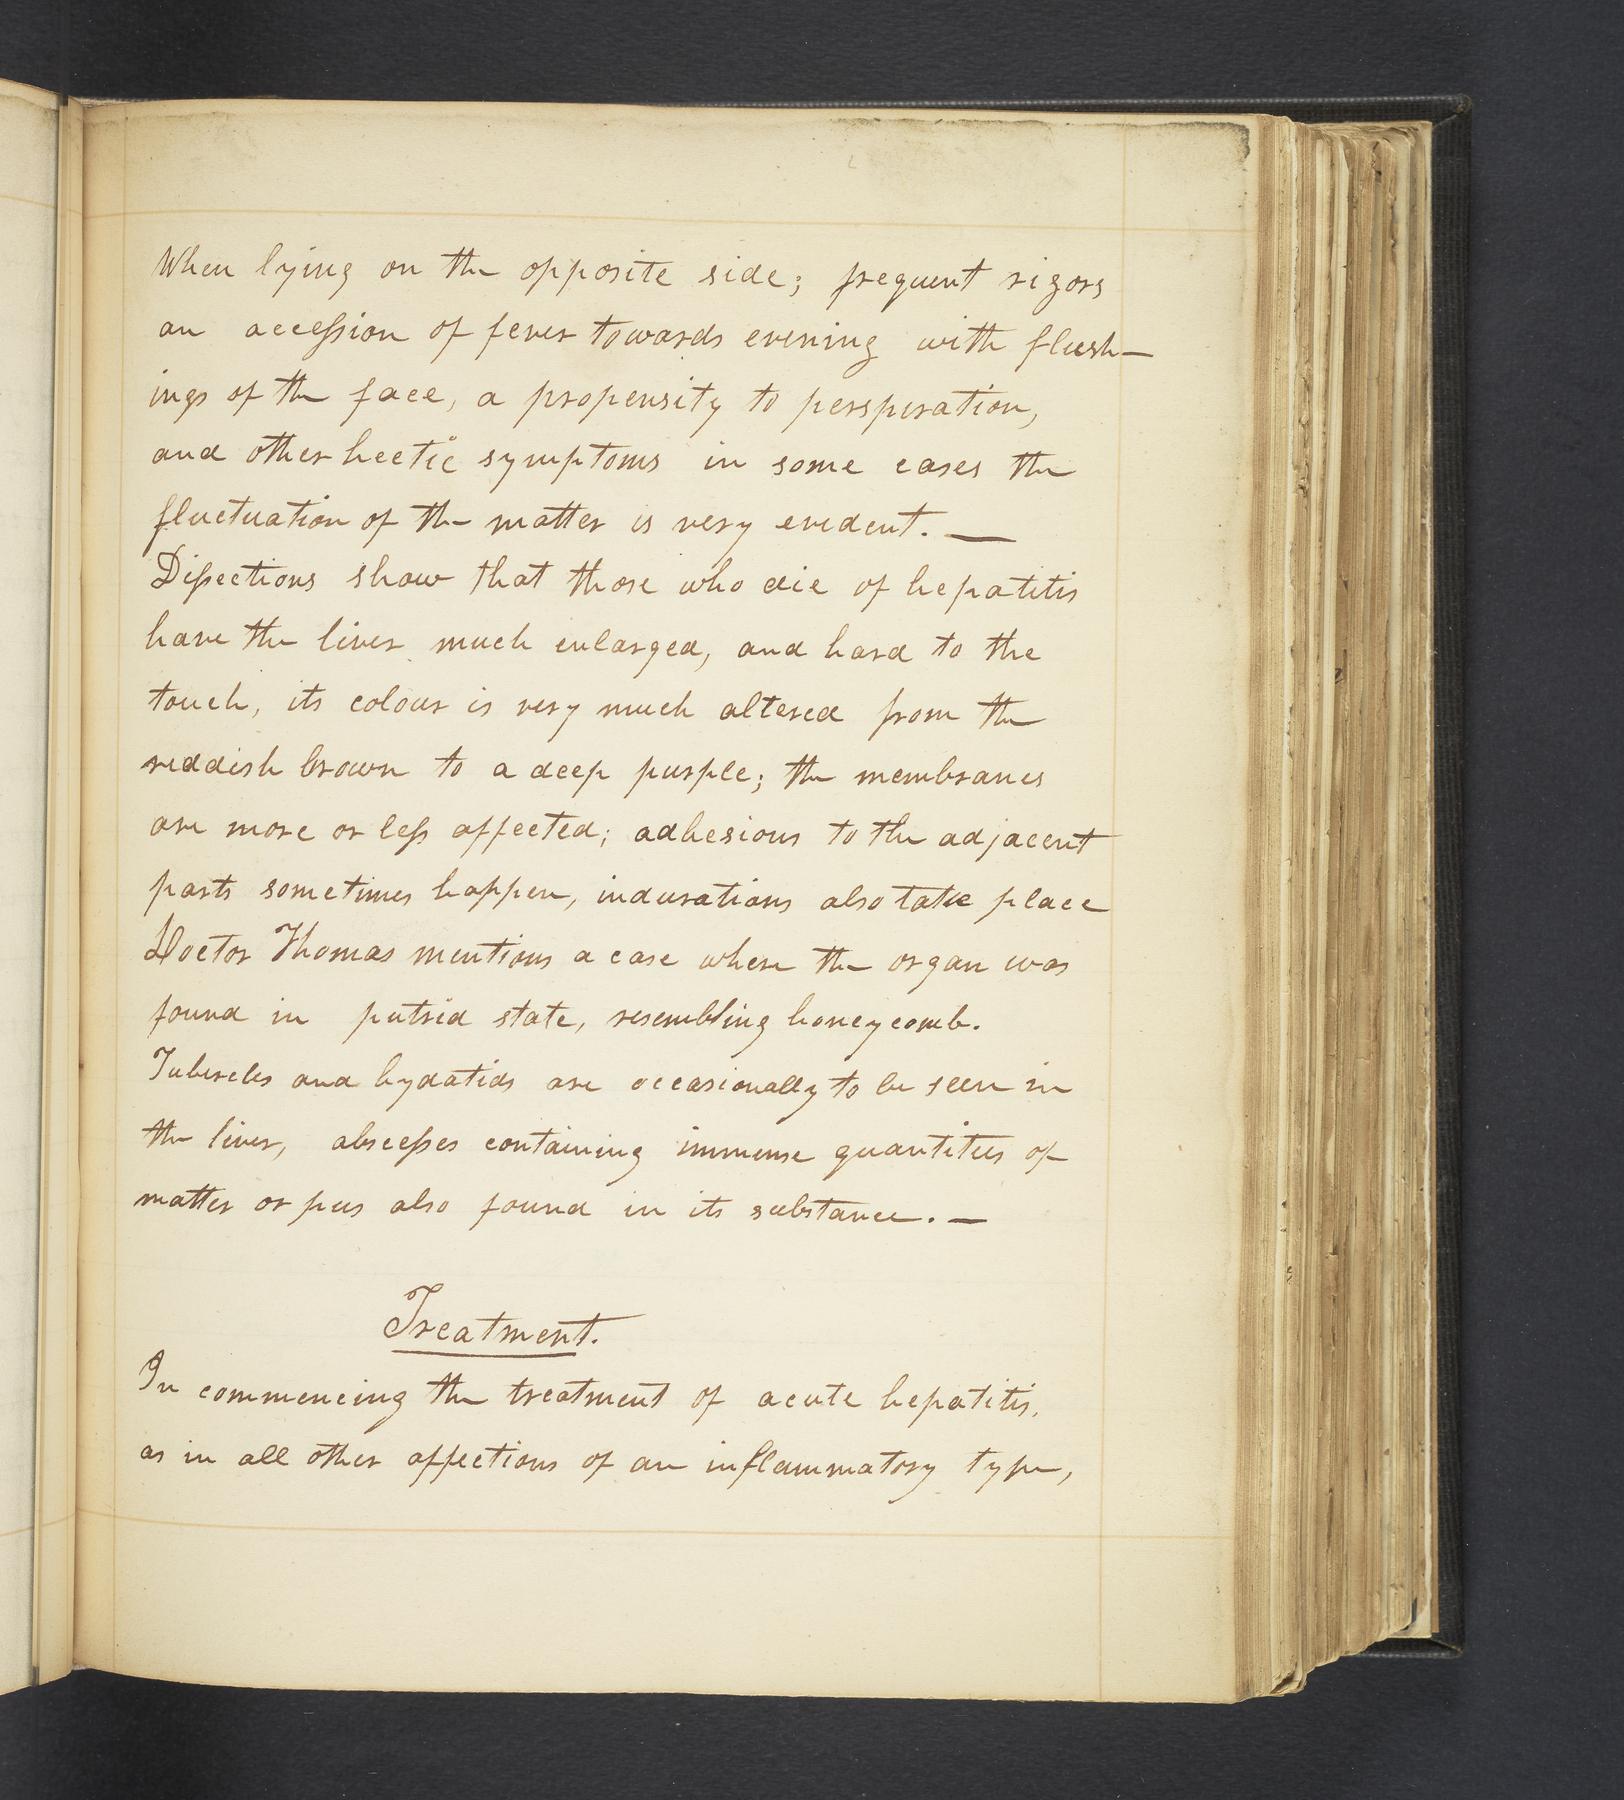 When lying on the opposite side; frequent rigors
an accession of fever towards evening with flush—
ings of the face, a propensity to persperation,
and other hectic symptoms in some cases the
fluctuation of the matter is very evident. —
Dissections show that those who die of hepatitis
have the liver much enlarged, and hard to the
touch, its colour is very much altered from the
reddish brown to a deep purple; the membranes
are more or less affected; adhesions to the adjacent
parts sometimes happen, indurations also take place
Doctor Thomas mentions a case where the organ was
found in putrid state, resembling honeycomb.
Tubercles and hydatids are occasionally to be seen in
the liver, abscesses containing immense quantities of
matter or pus also found in its substance. —
Treatment.
In commencing the treatment of acute hepatitis,
as in all other affections of an inflammatory type,